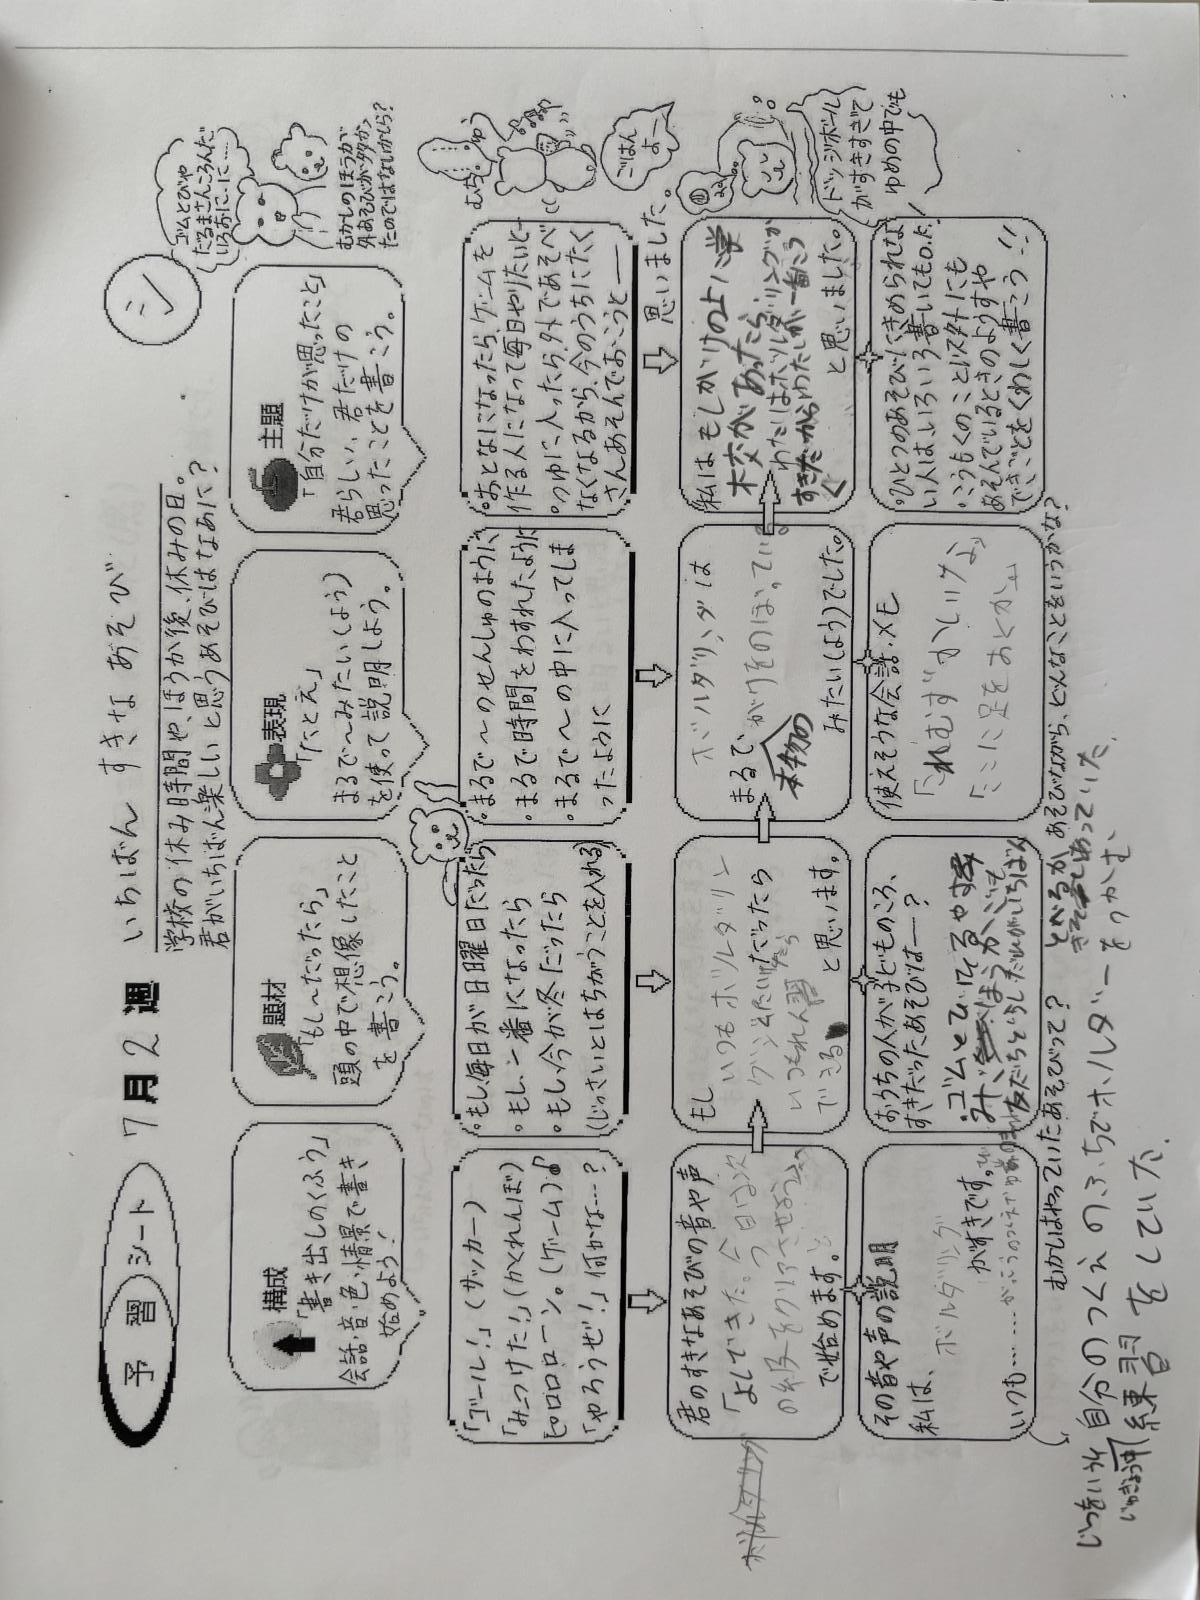 予習シート 7月2週 いちばん すきな あそび
シ
学校の休み時間や、ほうか後、休みの日。
君がいちばん楽しいと思うあそびはなあに?
ゴムとびや
だるまさんころんだ
いろおにーに……
むかしのほうが
外あそびが多か
たのではないかしら?
構成
「書き出しのくふう」
会話・音・色・情景で書き
始めよう!
題材
「もし〜だったら」
頭の中で想像したこと
を書こう。
表現
「たとえ」
まるで〜みたい(よう)
を使って説明しよう。
主題
「自分だけが思ったこと」
君らしい、君だけの
思ったことを書こう。
「ゴール!」(サッカー)
「みつけた!」(かくれんぼ)
ピロロローン。(ゲーム)
「やろうぜ!」何かな…?
。もし、毎日が日曜日だったら
。もし、一番になったら
。もし、今が冬だったら
(じっさいとはちがうことを入れる)
。まるで〜のせんしゅのように
。まるで時間をわすれたように
。まるで〜の中に入ってしま
ったように
。おとなになったら、ゲームを
作る人になって毎日やりたいと
。つゆに入ったら、外であそべ
なくなるから、今のうちにたく
さんあそんでおこうと
思いました。
むちゅう
ごはん
よー
君のすきなあそびの音や声
「よしできた。今日は次
の級をクリアさせよう」と
で始めます。
ボルダリング
もし
いつもボルダリン
グ
いつもれん習
できる
と思います。
ボルダリングは
まるで、がけをのぼっている
本物の
みたい(よう)でした。
私はもしがけの上に学
校があったら、
わたしはボルダリングが
すきだからわたしが一番につ
く
と思いました。
ドッジボール
がすきすぎて
ゆめの中でも
その音や声の説明
私は、
ボルダリング
がすきです。
いつも……
おうちの人が子どものころ、
すきだったあそびは―?
・ゴムとび
使えそうな会話・メモ
「れむずかしいけど」
「ここに足をおくか」
。ひとつのあそびにきめられな
い人は、いろいろ書いてもO.K!
。こうもくのこと以外にも
あそんでいるときのようすや
できごとをくわしく書こう!!
むかしはやっていたあそびって?
あそびながら、どんなことをいうかな?
とべるか
きそいあっていた
じつをいうと自分のつくえのふちでボルダーをつかむ、
じゅぎょう中練習をしていた。